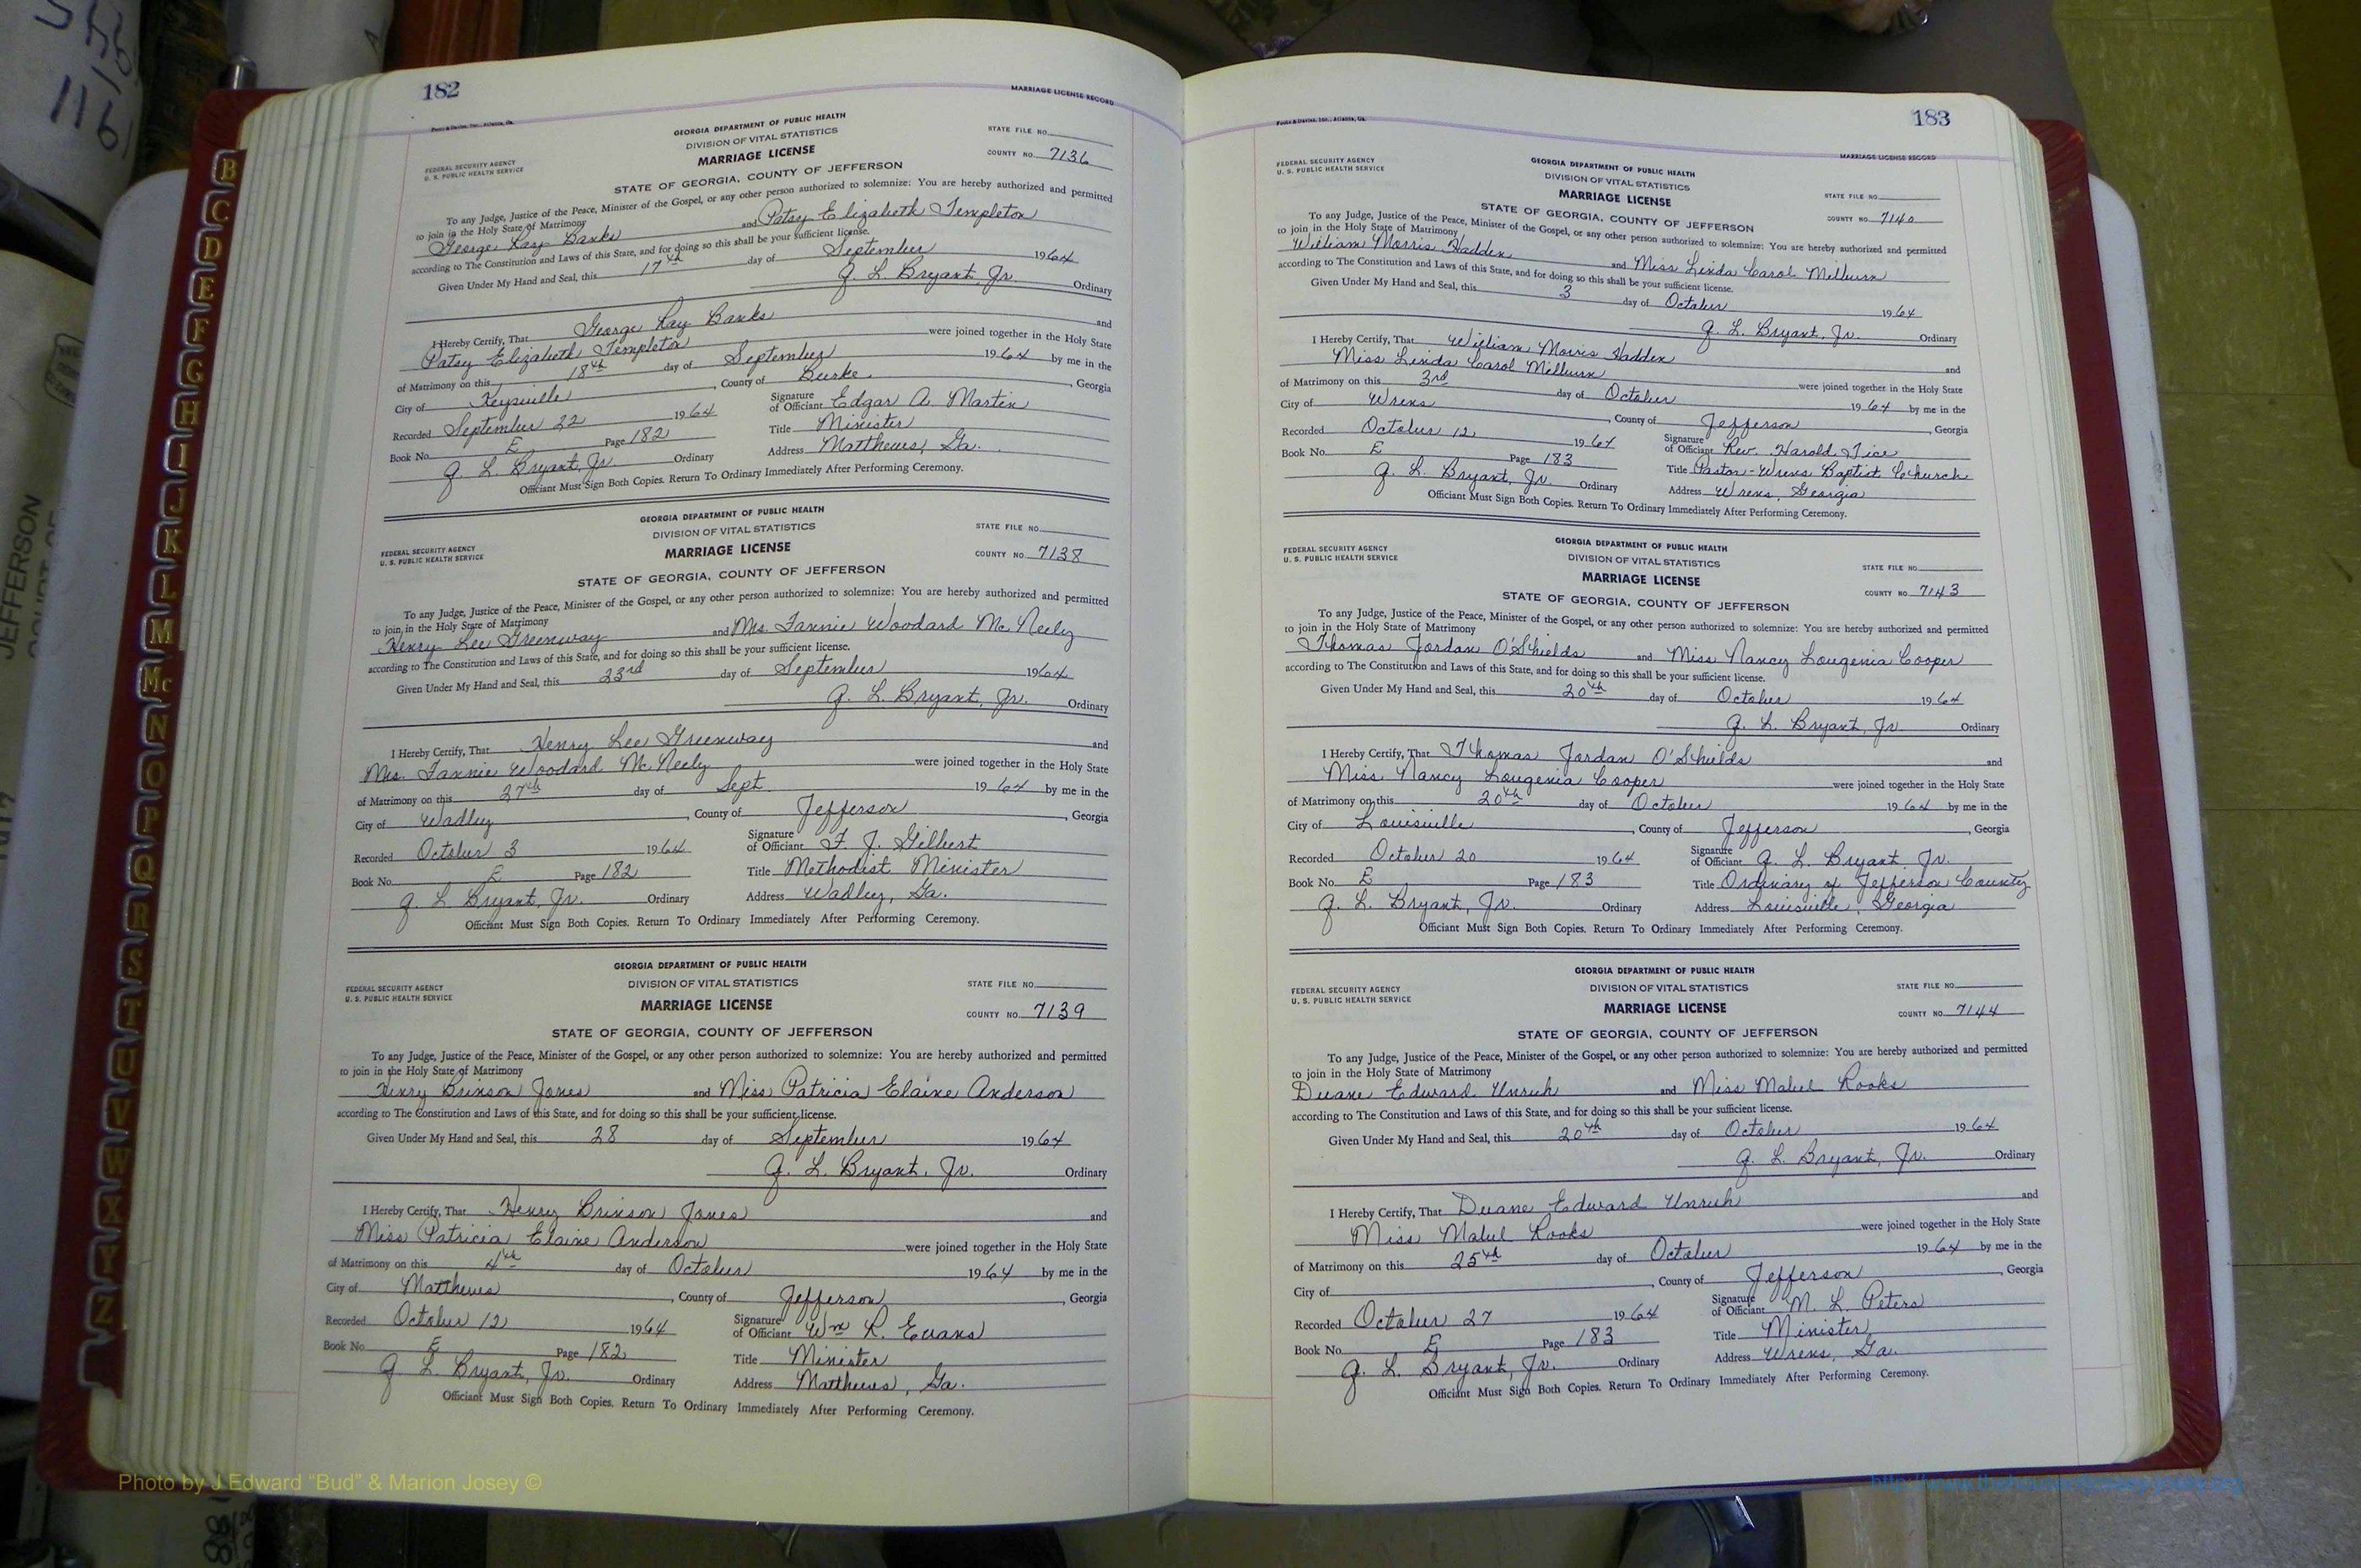 182
MARRIAGE LICENSE RECORD
GEORGIA DEPARTMENT OF PUBLIC HEALTH
DIVISION OF VITAL STATISTICS
MARRIAGE LICENSE
STATE FILE NO.
COUNTY NO. 7136
FEDERAL SECURITY AGENCY
U. S. PUBLIC HEALTH SERVICE
STATE OF GEORGIA, COUNTY OF JEFFERSON
To any Judge, Justice of the Peace, Minister of the Gospel, or any other person authorized to solemnize: You are hereby authorized and permitted
to join in the Holy State of Matrimony
George Ray Banks and Patsy Elizabeth Templeton
according to The Constitution and Laws of this State, and for doing so this shall be your sufficient license.
Given Under My Hand and Seal, this 17th day of September 1964
G. L. Bryant, Jr. Ordinary
I Hereby Certify, That George Ray Banks and
Patsy Elizabeth Templeton were joined together in the Holy State
of Matrimony on this 18th day of September 1964 by me in the
City of Keysville, County of Burke, Georgia
Recorded September 22 1964 Signature of Officiant Edgar A. Martin
Book No. E Page 182 Title Minister
G. L. Bryant, Jr. Ordinary Address Matthews, Ga.
Officiant Must Sign Both Copies. Return To Ordinary Immediately After Performing Ceremony.
GEORGIA DEPARTMENT OF PUBLIC HEALTH
DIVISION OF VITAL STATISTICS
MARRIAGE LICENSE
STATE FILE NO.
COUNTY NO. 7138
FEDERAL SECURITY AGENCY
U. S. PUBLIC HEALTH SERVICE
STATE OF GEORGIA, COUNTY OF JEFFERSON
To any Judge, Justice of the Peace, Minister of the Gospel, or any other person authorized to solemnize: You are hereby authorized and permitted
to join in the Holy State of Matrimony
Henry Lee Greenway and Mrs. Fannie Woodard McNeely
according to The Constitution and Laws of this State, and for doing so this shall be your sufficient license.
Given Under My Hand and Seal, this 23rd day of September 1964
G. L. Bryant, Jr. Ordinary
I Hereby Certify, That Henry Lee Greenway and
Mrs. Fannie Woodard McNeely were joined together in the Holy State
of Matrimony on this 27th day of Sept. 1964 by me in the
City of Wadley, County of Jefferson, Georgia
Recorded October 3 1964 Signature of Officiant F. J. Gilbert
Book No. E Page 182 Title Methodist Minister
G. L Bryant, Jr. Ordinary Address Wadley, Ga.
Officiant Must Sign Both Copies. Return To Ordinary Immediately After Performing Ceremony.
GEORGIA DEPARTMENT OF PUBLIC HEALTH
DIVISION OF VITAL STATISTICS
MARRIAGE LICENSE
STATE FILE NO.
COUNTY NO. 7139
FEDERAL SECURITY AGENCY
U. S. PUBLIC HEALTH SERVICE
STATE OF GEORGIA, COUNTY OF JEFFERSON
To any Judge, Justice of the Peace, Minister of the Gospel, or any other person authorized to solemnize: You are hereby authorized and permitted
to join in the Holy State of Matrimony
Henry Brinson Jones and Miss Patricia Elaine Anderson
according to The Constitution and Laws of this State, and for doing so this shall be your sufficient license.
Given Under My Hand and Seal, this 28 day of September 1964
G. L. Bryant, Jr. Ordinary
I Hereby Certify, That Henry Brinson Jones and
Miss Patricia Elaine Anderson were joined together in the Holy State
of Matrimony on this 4th day of October 1964 by me in the
City of Matthews, County of Jefferson, Georgia
Recorded October 12 1964 Signature of Officiant Wm R. Evans
Book No. E Page 182 Title Minister
G. L Bryant, Jr. Ordinary Address Matthews, Ga.
Officiant Must Sign Both Copies. Return To Ordinary Immediately After Performing Ceremony.
183
MARRIAGE LICENSE RECORD
GEORGIA DEPARTMENT OF PUBLIC HEALTH
DIVISION OF VITAL STATISTICS
MARRIAGE LICENSE
STATE FILE NO.
COUNTY NO. 7140
FEDERAL SECURITY AGENCY
U. S. PUBLIC HEALTH SERVICE
STATE OF GEORGIA, COUNTY OF JEFFERSON
To any Judge, Justice of the Peace, Minister of the Gospel, or any other person authorized to solemnize: You are hereby authorized and permitted
to join in the Holy State of Matrimony
William Morris Hadden and Miss Linda Carol Milburn
according to The Constitution and Laws of this State, and for doing so this shall be your sufficient license.
Given Under My Hand and Seal, this 3 day of October 1964
G. L. Bryant, Jr. Ordinary
I Hereby Certify, That William Morris Hadden and
Miss Linda Carol Milburn were joined together in the Holy State
of Matrimony on this 3rd day of October 1964 by me in the
City of Wrens, County of Jefferson, Georgia
Recorded October 12 1964 Signature of Officiant Rev. Harold Tice
Book No. E Page 183 Title Pastor-Wrens Baptist Church
G. L. Bryant, Jr. Ordinary Address Wrens, Georgia
Officiant Must Sign Both Copies. Return To Ordinary Immediately After Performing Ceremony.
GEORGIA DEPARTMENT OF PUBLIC HEALTH
DIVISION OF VITAL STATISTICS
MARRIAGE LICENSE
STATE FILE NO.
COUNTY NO. 7143
FEDERAL SECURITY AGENCY
U. S. PUBLIC HEALTH SERVICE
STATE OF GEORGIA, COUNTY OF JEFFERSON
To any Judge, Justice of the Peace, Minister of the Gospel, or any other person authorized to solemnize: You are hereby authorized and permitted
to join in the Holy State of Matrimony
Thomas Jordan O'Shields and Miss Nancy Lougenia Cooper
according to The Constitution and Laws of this State, and for doing so this shall be your sufficient license.
Given Under My Hand and Seal, this 20th day of October 1964
G. L. Bryant, Jr. Ordinary
I Hereby Certify, That Thomas Jordan O'Shields and
Miss Nancy Lougenia Cooper were joined together in the Holy State
of Matrimony on this 20th day of October 1964 by me in the
City of Louisville, County of Jefferson, Georgia
Recorded October 20 1964 Signature of Officiant G. L. Bryant, Jr.
Book No. E Page 183 Title Ordinary of Jefferson County
G. L. Bryant, Jr. Ordinary Address Louisville, Georgia
Officiant Must Sign Both Copies. Return To Ordinary Immediately After Performing Ceremony.
GEORGIA DEPARTMENT OF PUBLIC HEALTH
DIVISION OF VITAL STATISTICS
MARRIAGE LICENSE
STATE FILE NO.
COUNTY NO. 7144
FEDERAL SECURITY AGENCY
U. S. PUBLIC HEALTH SERVICE
STATE OF GEORGIA, COUNTY OF JEFFERSON
To any Judge, Justice of the Peace, Minister of the Gospel, or any other person authorized to solemnize: You are hereby authorized and permitted
to join in the Holy State of Matrimony
Duane Edward Unruh and Miss Mabel Rooks
according to The Constitution and Laws of this State, and for doing so this shall be your sufficient license.
Given Under My Hand and Seal, this 20th day of October 1964
G. L. Bryant, Jr. Ordinary
I Hereby Certify, That Duane Edward Unruh and
Miss Mabel Rooks were joined together in the Holy State
of Matrimony on this 25th day of October 1964 by me in the
City of , County of Jefferson, Georgia
Recorded October 27 1964 Signature of Officiant M. L. Peters
Book No. E Page 183 Title Minister
G. L. Bryant, Jr. Ordinary Address Wrens, Ga.
Officiant Must Sign Both Copies. Return To Ordinary Immediately After Performing Ceremony.
B
C
D
E
F
G
H
I
J
K
L
M
Mc
N
O
P
Q
R
S
T
U
V
W
X
Y
Z
JEFFERSON
Photo by J Edward "Bud" & Marion Josey ©